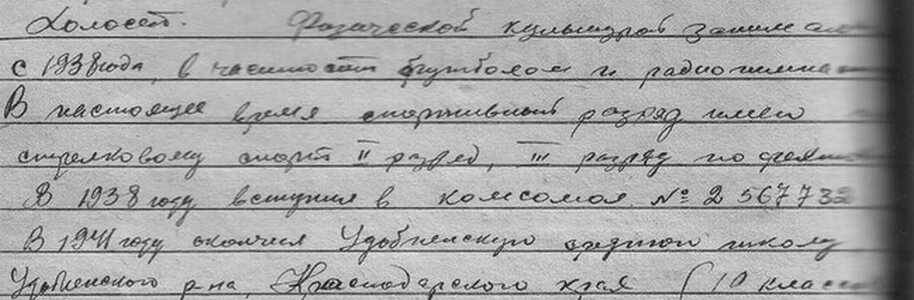 Холост. Физической культурой занимаю
с 1938 года, в частности футболом и радиогимна
В настоящее время спортивный разряд имею
стрелковому спорту II разряд, III разряд по
В 1938 году вступил в комсомол № 2 56773
В 1941 году окончил Удобненскую среднюю школу
Удобненского р-на, Краснодарского края (10 класс